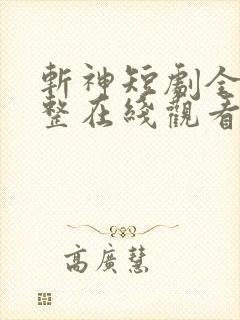 斬神短劇全
整在綫觀看
高廣慧